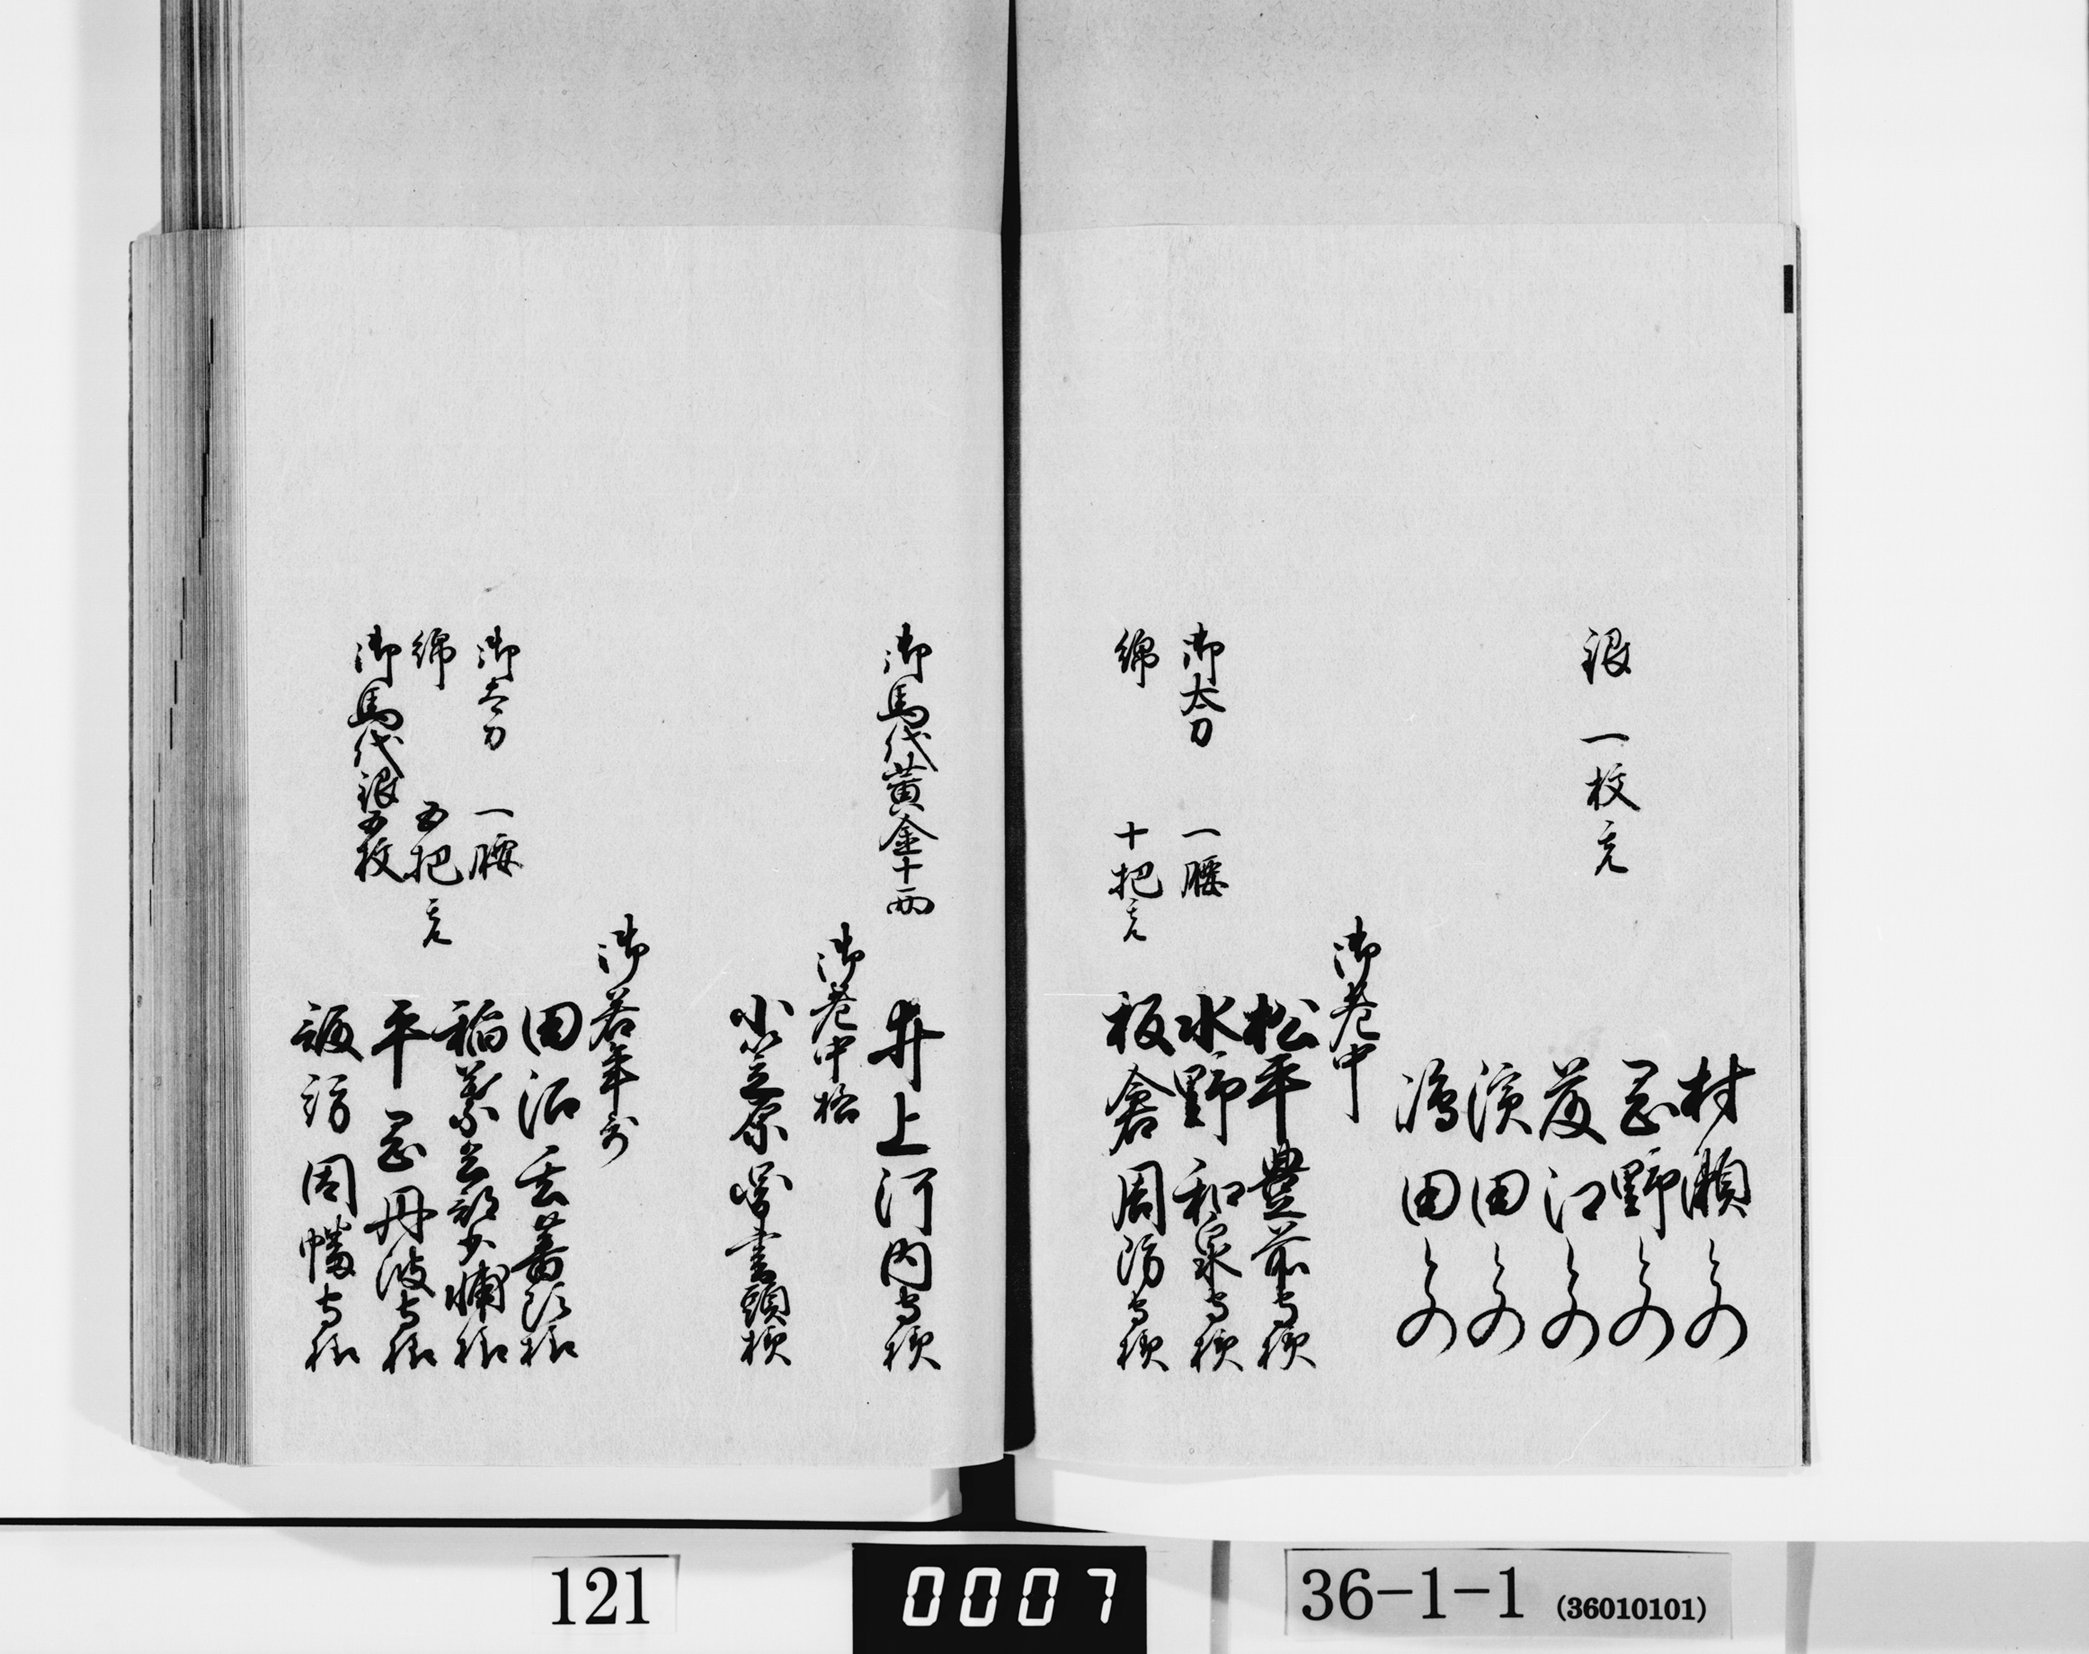 銀 一枚充
村瀬とのへ
君野とのへ
藤江とのへ
濱田とのへ
嶋田とのへ
御老中
松平豊前守様
御太刀 一腰
水野和泉守様
綿 十把充
板倉周防守様
御馬代黄金十両
井上河内守様
御老中格
小笠原図書頭様
御若年寄
田沼玄蕃頭様
御太刀 一腰
稲葉兵部少輔様
綿 五把充
平岡丹波守様
御馬代銀五枚
諏訪因幡守様
121
0007
36-1-1 (36010101)